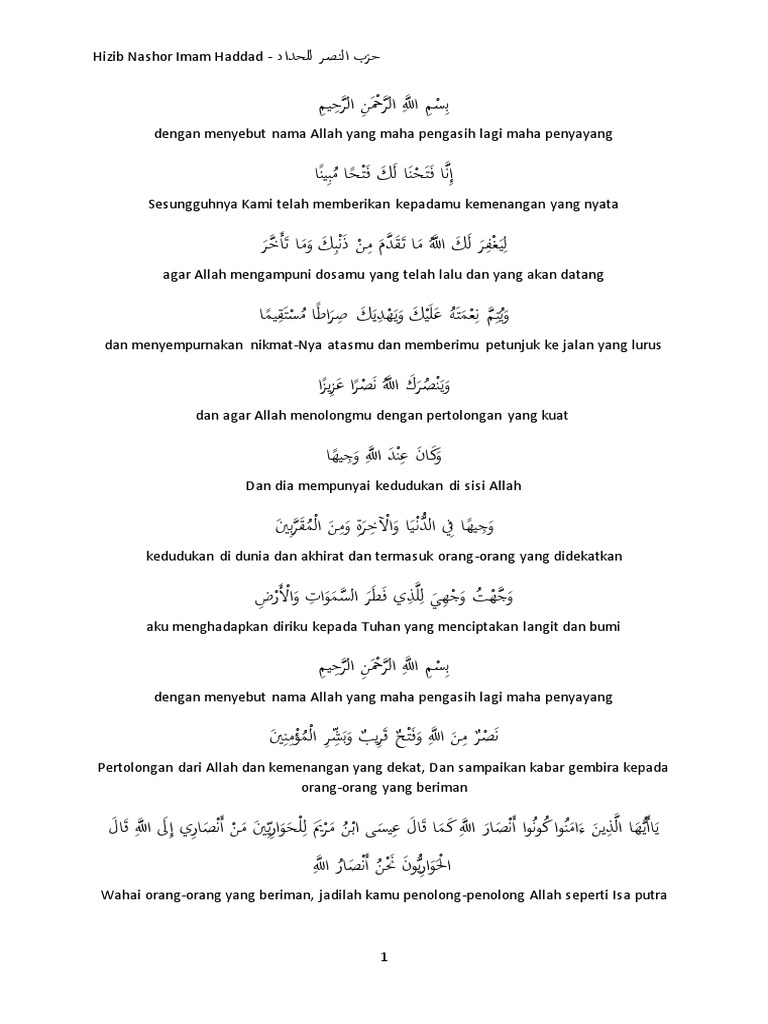 Hizib Nashor Imam Haddad - حزب النصر للحداد
بِسْمِ اللَّهِ الرَّحْمَنِ الرَّحِيمِ
dengan menyebut nama Allah yang maha pengasih lagi maha penyayang
إِنَّا فَتَحْنَا لَكَ فَتْحًا مُبِينًا
Sesungguhnya Kami telah memberikan kepadamu kemenangan yang nyata
لِيَغْفِرَ لَكَ اللَّهُ مَا تَقَدَّمَ مِنْ ذَنْبِكَ وَمَا تَأَخَّرَ
agar Allah mengampuni dosamu yang telah lalu dan yang akan datang
وَيُتِمَّ نِعْمَتَهُ عَلَيْكَ وَيَهْدِيَكَ صِرَاطًا مُسْتَقِيمًا
dan menyempurnakan nikmat-Nya atasmu dan memberimu petunjuk ke jalan yang lurus
وَيَنْصُرَكَ اللَّهُ نَصْرًا عَزِيزًا
dan agar Allah menolongmu dengan pertolongan yang kuat
وَكَانَ عِنْدَ اللَّهِ وَجِيهًا
Dan dia mempunyai kedudukan di sisi Allah
وَجِيهًا فِي الدُّنْيَا وَالْآخِرَةِ وَمِنَ الْمُقَرَّبِينَ
kedudukan di dunia dan akhirat dan termasuk orang-orang yang didekatkan
وَجَّهْتُ وَجْهِيَ لِلَّذِي فَطَرَ السَّمَوَاتِ وَالْأَرْضِ
aku menghadapkan diriku kepada Tuhan yang menciptakan langit dan bumi
بِسْمِ اللَّهِ الرَّحْمَنِ الرَّحِيمِ
dengan menyebut nama Allah yang maha pengasih lagi maha penyayang
نَصْرٌ مِنَ اللَّهِ وَفَتْحٌ قَرِيبٌ وَبَشِّرِ الْمُؤْمِنِينَ
Pertolongan dari Allah dan kemenangan yang dekat, Dan sampaikan kabar gembira kepada
orang-orang yang beriman
يَاأَيُّهَا الَّذِينَ ءَامَنُوا كُونُوا أَنْصَارَ اللَّهِ كَمَا قَالَ عِيسَى ابْنُ مَرْيَمَ لِلْحَوَارِيِّينَ مَنْ أَنْصَارِي إِلَى اللَّهِ قَالَ
الْحَوَارِيُّونَ نَحْنُ أَنْصَارُ اللَّهِ
Wahai orang-orang yang beriman, jadilah kamu penolong-penolong Allah seperti Isa putra
1